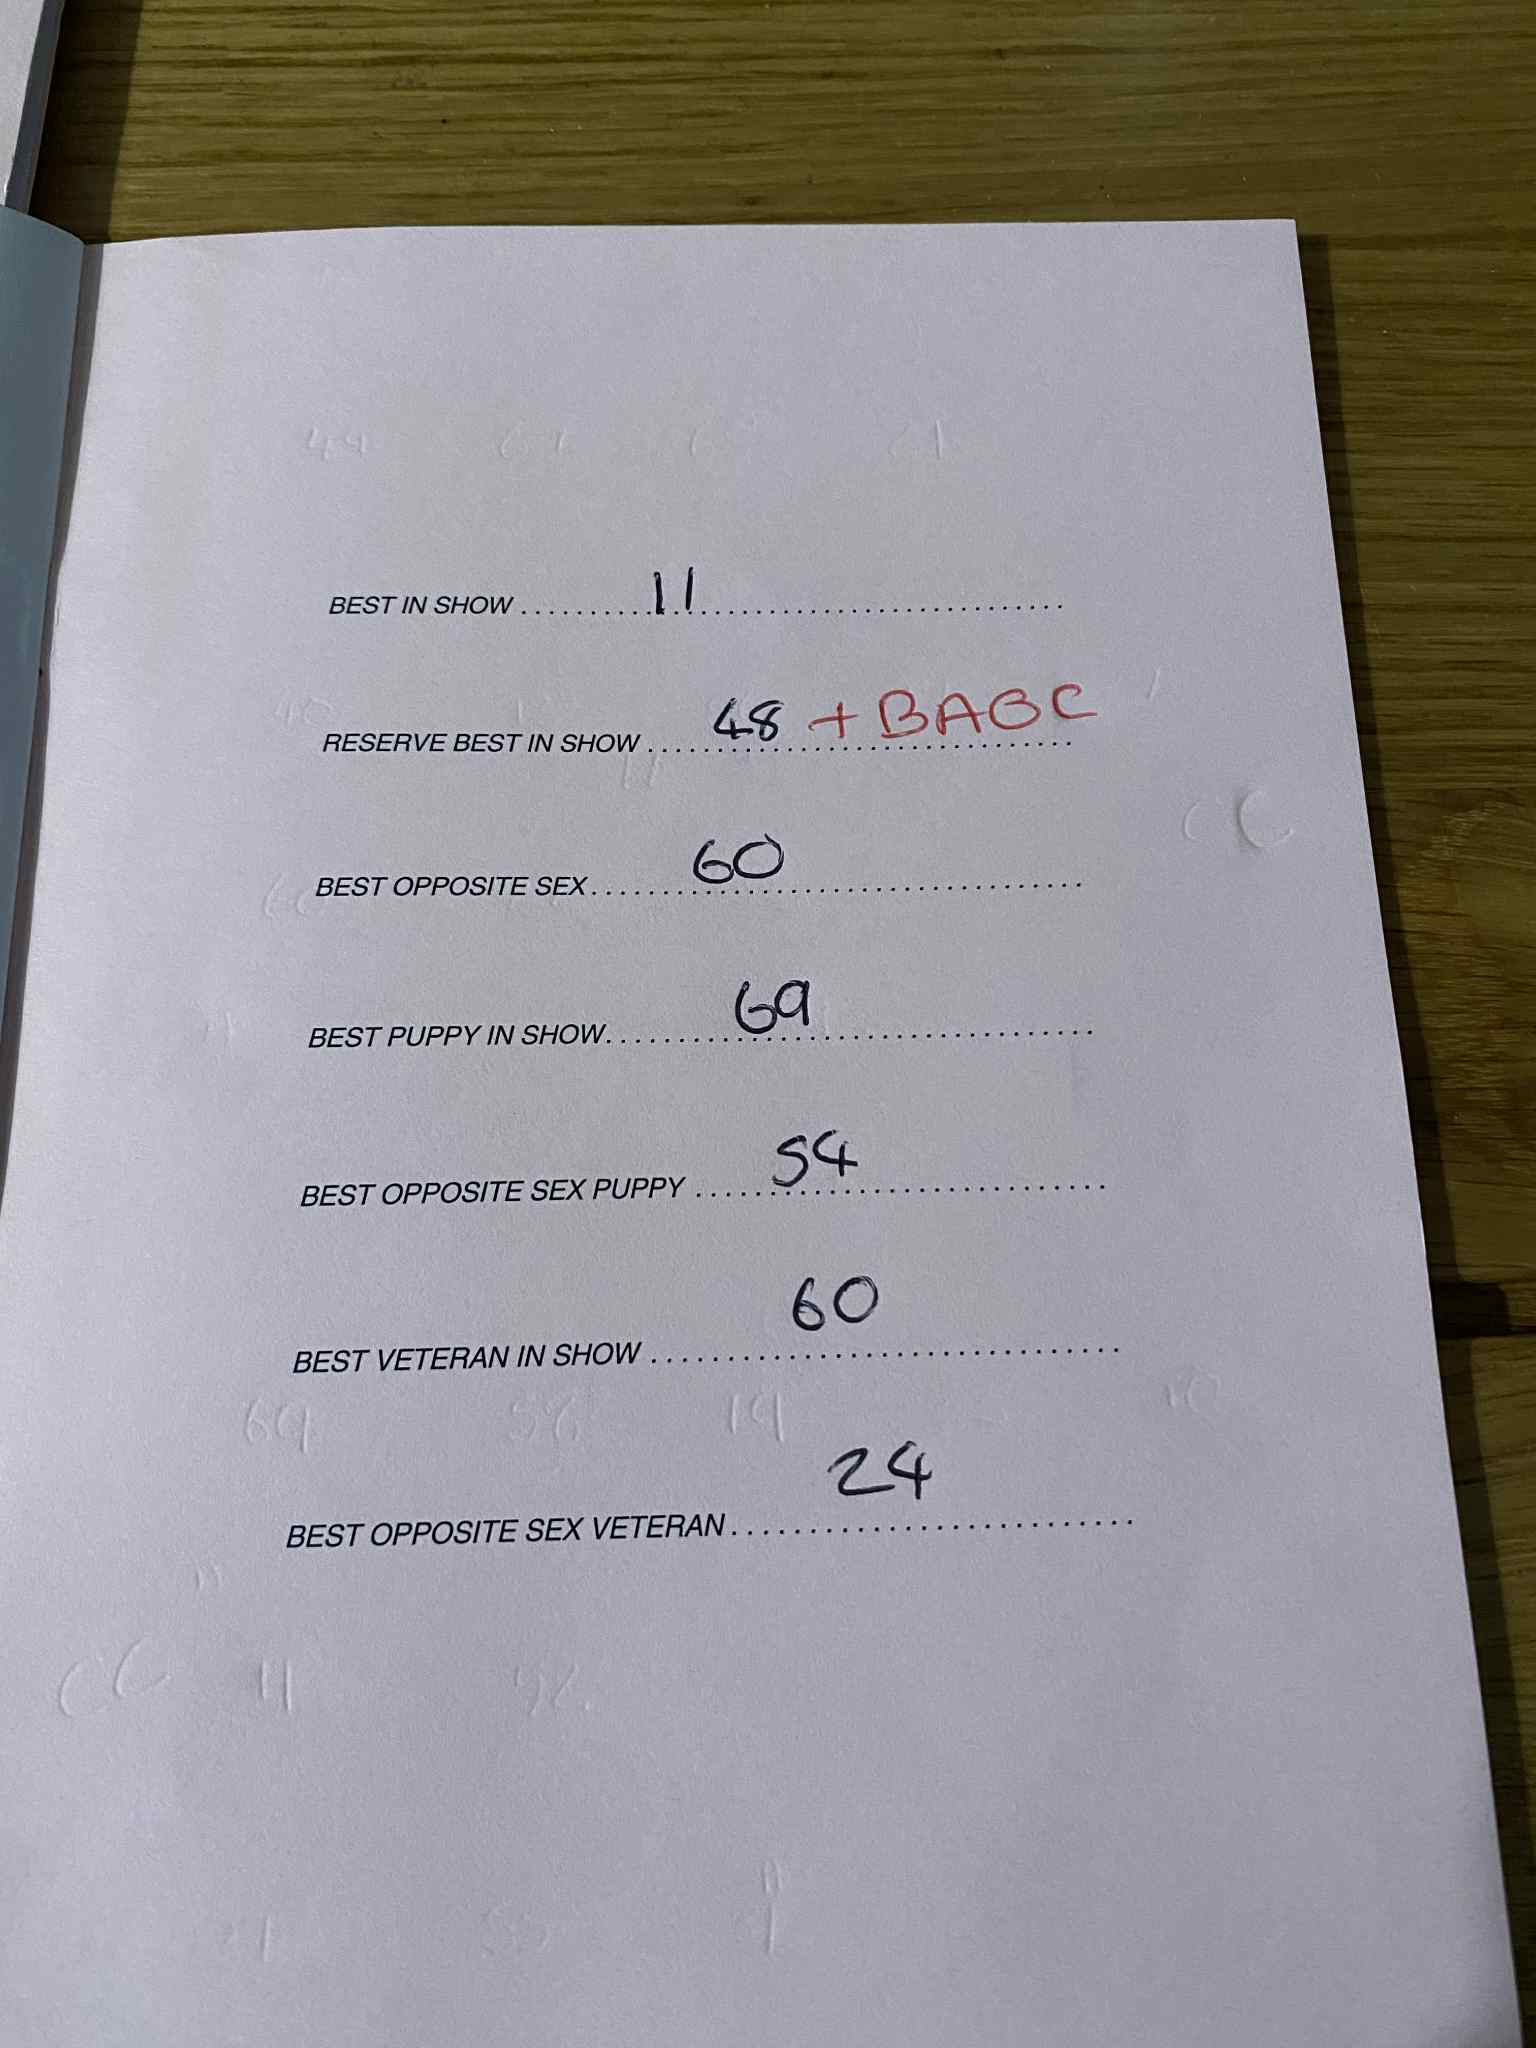 BEST IN SHOW .......... 11 ..........
RESERVE BEST IN SHOW .......... 48 + BAGC
BEST OPPOSITE SEX .......... 60 ..........
BEST PUPPY IN SHOW .......... 69 ..........
BEST OPPOSITE SEX PUPPY .......... 54 ..........
BEST VETERAN IN SHOW .......... 60 ..........
BEST OPPOSITE SEX VETERAN .......... 24 ..........